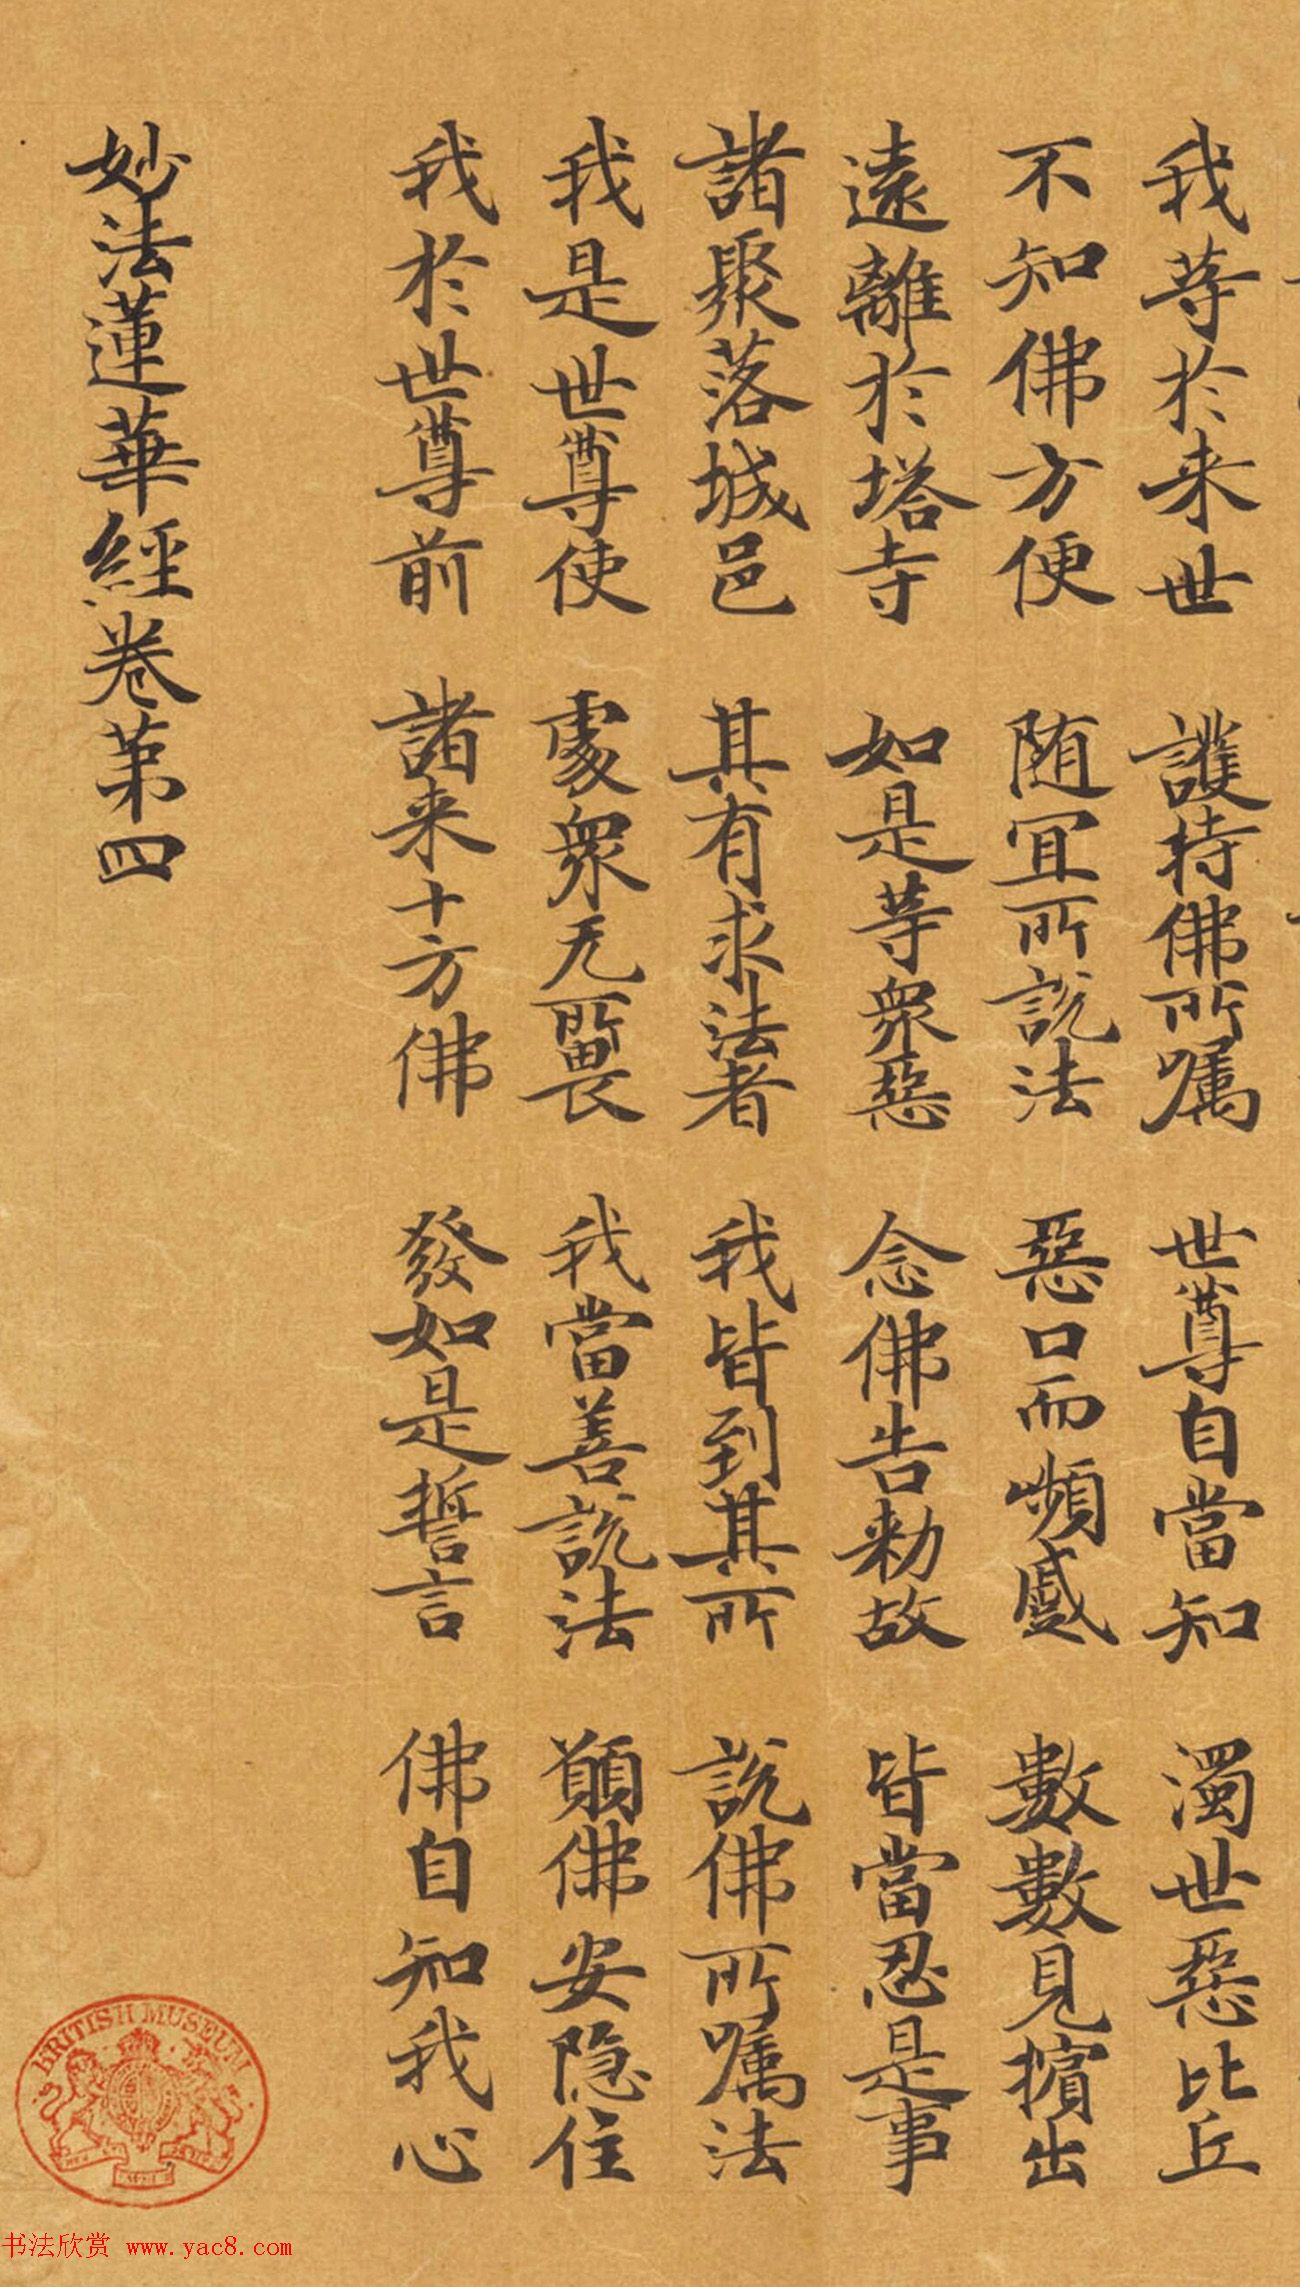 我等於来世 護持佛所囑 世尊自當知 濁世惡比丘
不知佛方便 随宜所說法 惡口而嚬蹙 數數見擯出
遠離於塔寺 如是等衆惡 念佛告勑故 皆當忍是事
諸聚落城邑 其有求法者 我皆到其所 說佛所囑法
我是世尊使 處衆无所畏 我當善說法 願佛安隐住
我於世尊前 諸来十方佛 發如是誓言 佛自知我心
妙法蓮華經卷第四
BRITISH MUSEUM
书法欣赏 www.yac8.com